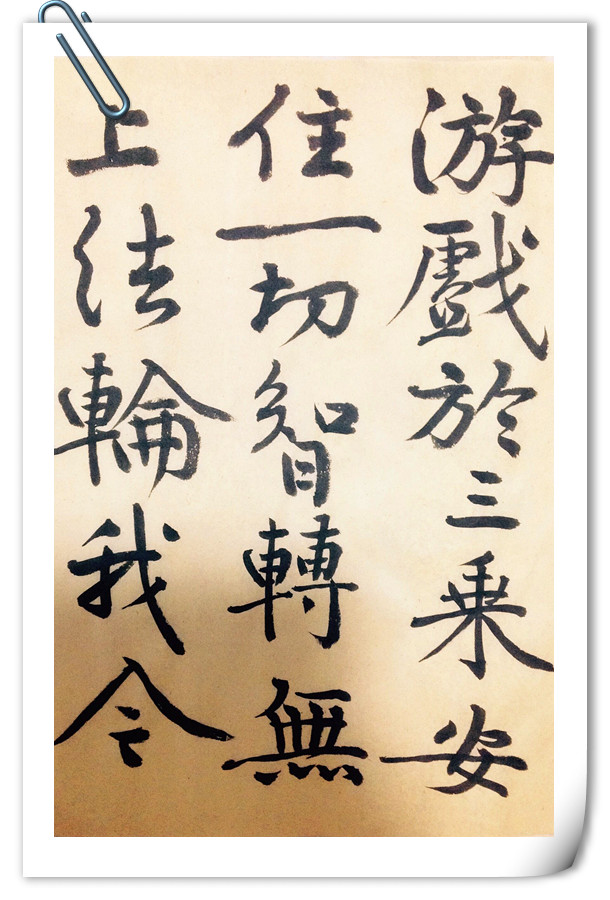 游戲於三乗安
住一切智轉無
上法輪我今